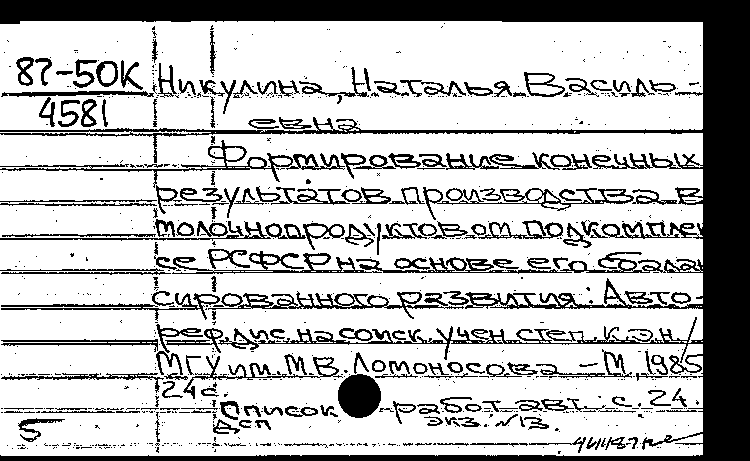 87-50К Никулина, Наталья Василь-
4581 евна
Формирование конечных
результатов производства в
молочнопродуктовом подкомплек
се РСФСР на основе его сбалан
сированного развития: Авто-
реф. дис. на соиск. учен. степ. к.э.н. /
МГУ им. М.В. Ломоносова - М, 1985
24с
Список работ авт.: с. 24.
Дсп экз. №13.
5